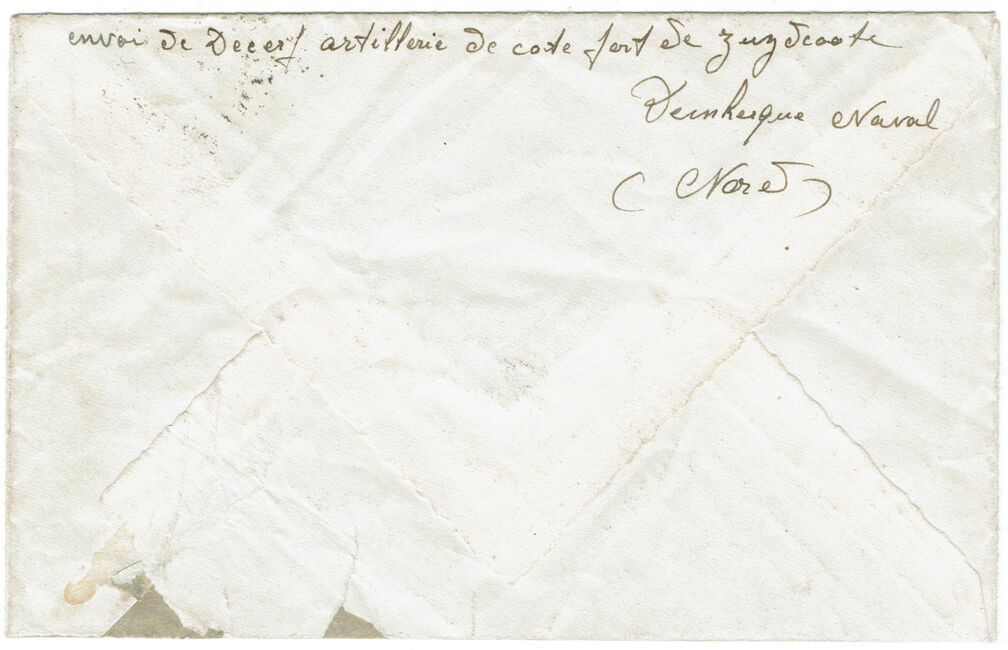 envoi de Decerf artillerie de cote fort de zuydcoote
Dunkerque Naval
(Nord)